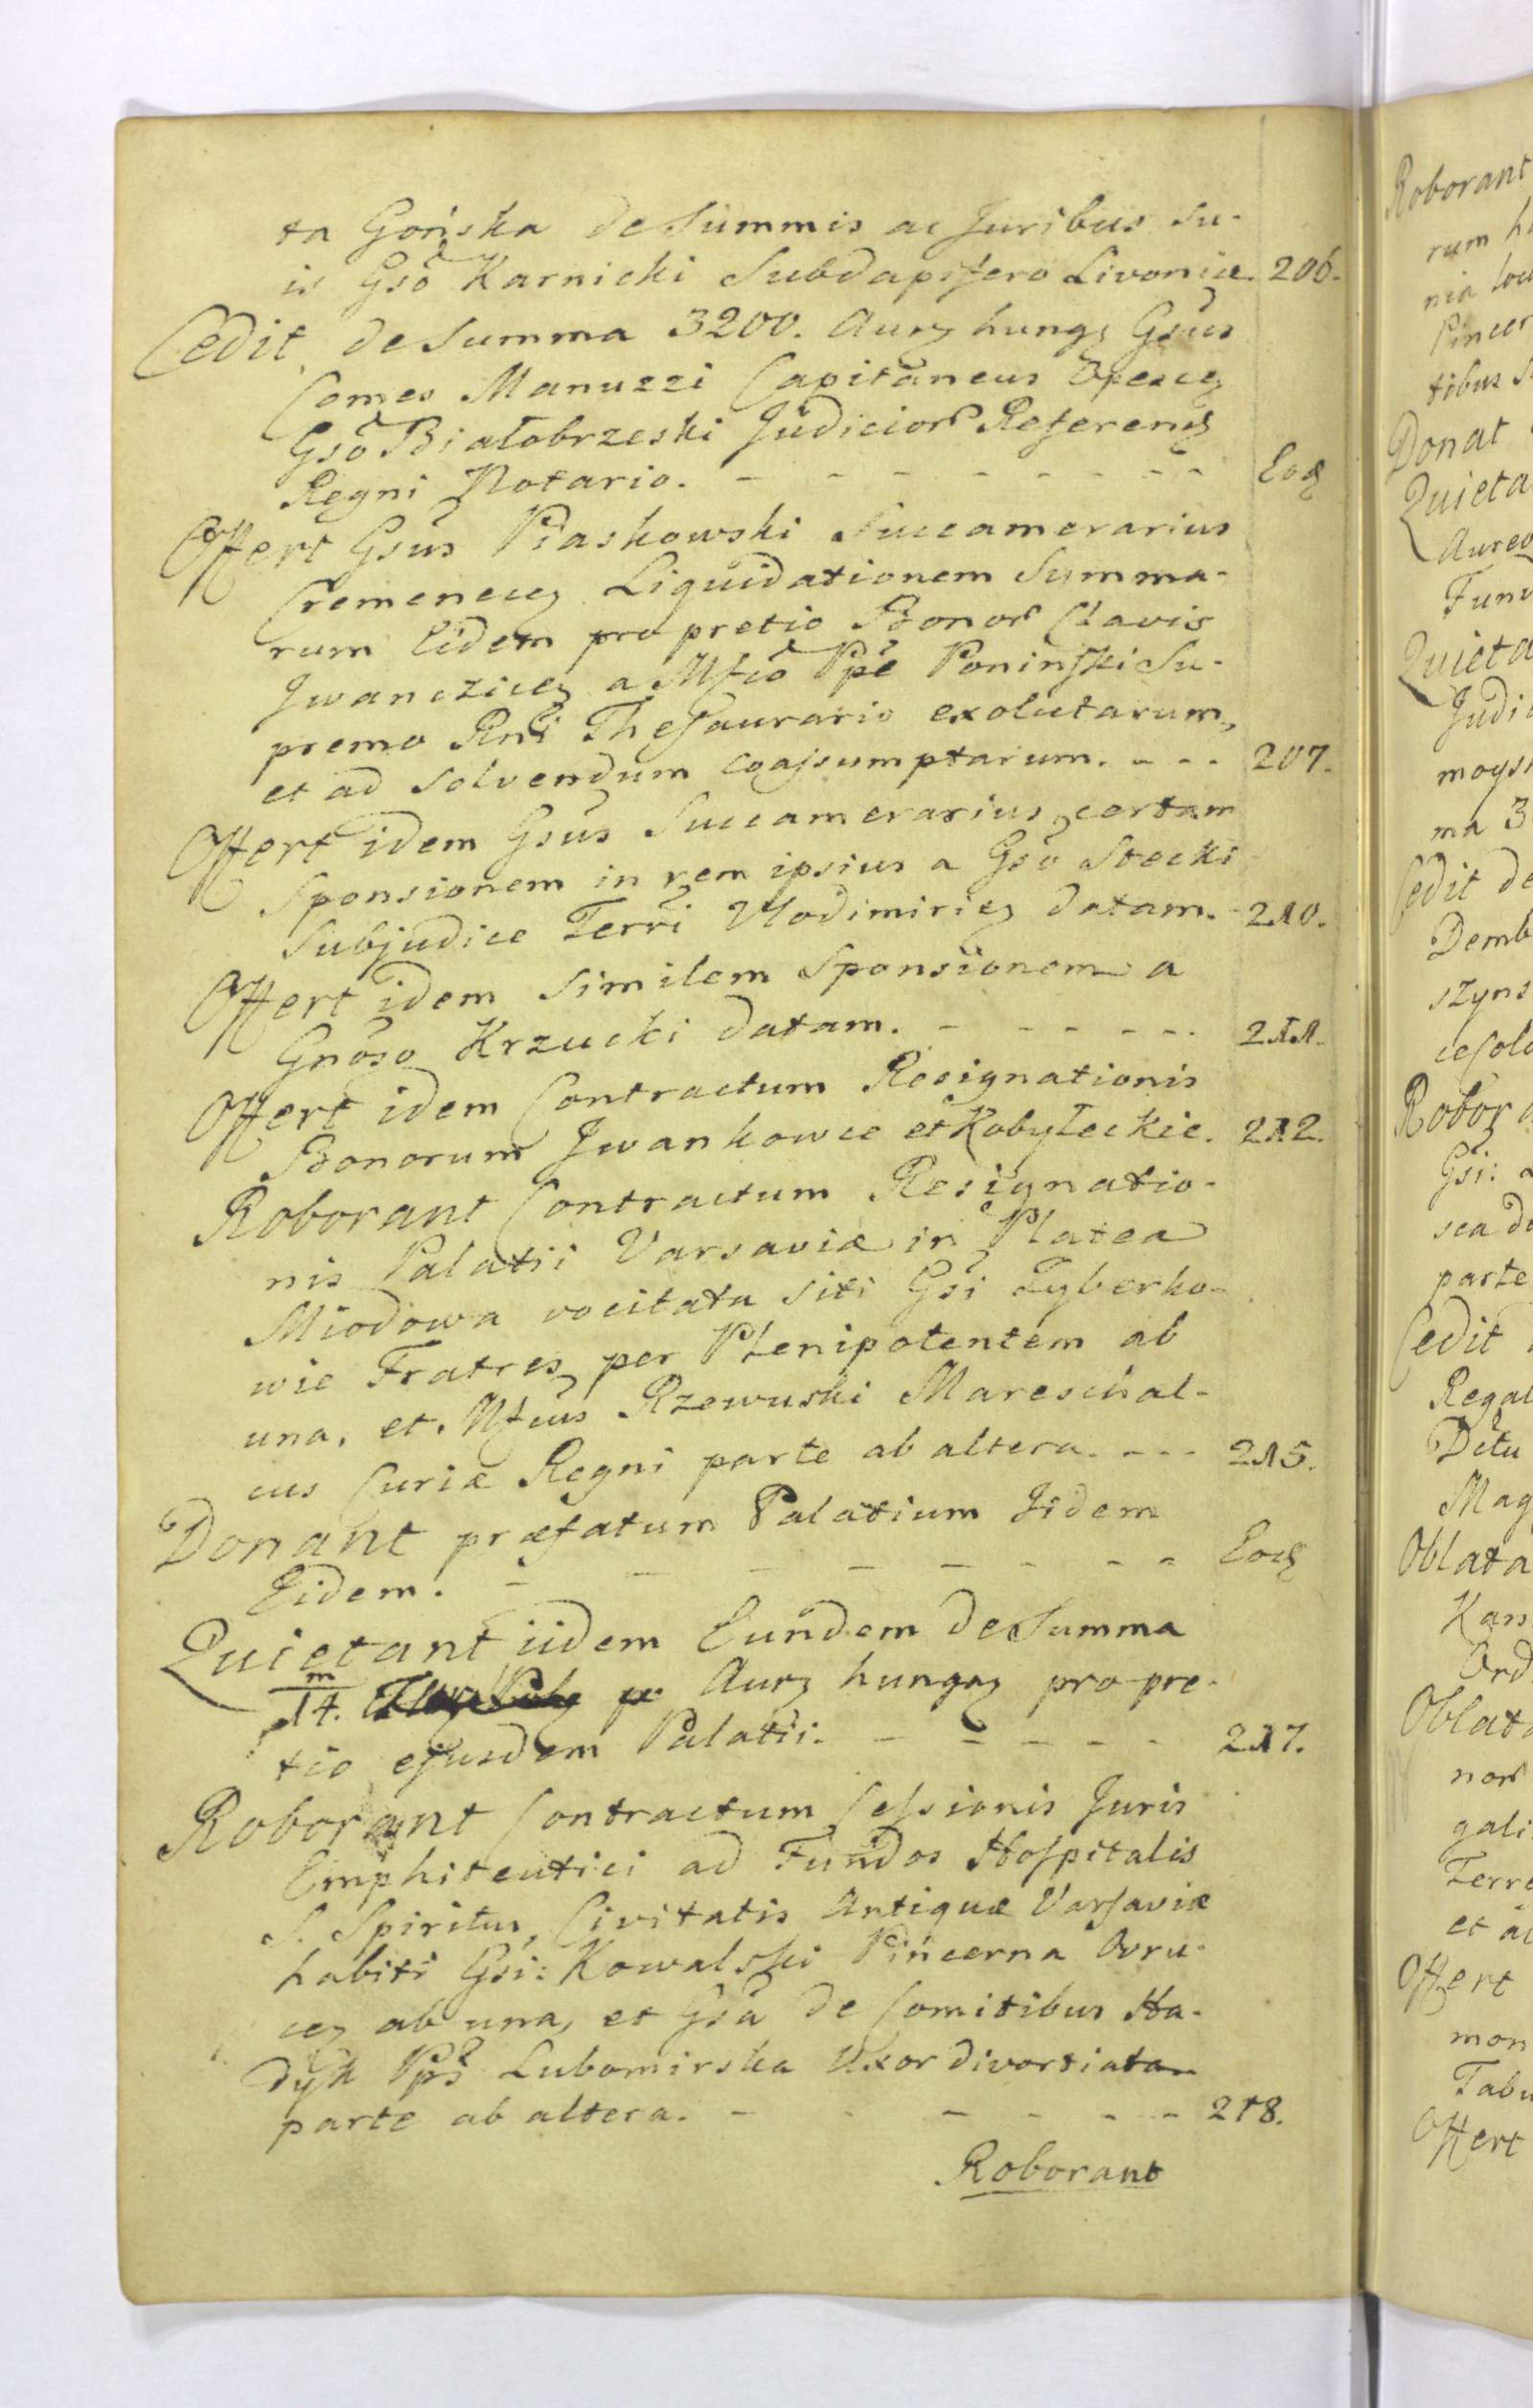 ta Gońska de Summis ac Juribus Su-
is Gso Karnicki Subdapifero Livoniæ. 206.
Cedit de Summa 3200. Aurz hungz Gsus
Comes Manuzzi Capitaneus Opescz
Gso Białobrzeski Judicior Referendz
Regni Notario. - - - - - - - - Eodz
Offert Gsus Piaskowski Succamerarius
Cremenecz Liquidationem Summa-
rum Eidem pro pretio Bonor Clavis
Jwanczicez a Mfco Ppe Poninski Su-
premo Rni Thesaurario exolutarum,
et ad Solvendum coassumptarum. - - - 207.
Offert idem Gsus Succamerarius certam
Sponsionem in rem ipsius a Gso Stecki
Subjudice Terri Vlodimiricz datam. - 210.
Offert idem Similem Sponsionem a
Gnoso Krzucki datam. - - - - - - 211.
Offert idem Contractum Resignationis
Bonorum Jwankowce et Kobyłeckie. 212.
Roborant Contractum Resignatio-
nis Palatii Varsaviæ in Platea
Miodowa vocitata Siti Gsi Tyberko-
wie Fratres per Plenipotentem ab
una, et Mfcus Rzewuski Mareschal-
cus Curiæ Regni parte ab altera. - - - 215.
Donant præfatum Palatium Jidem
Eidem. - - - - - - - Eodz
Quietant iidem Eundem de Summa
m
14. Aurz hungaz pro pre-
tio ejusdem Palatii. - - - - - - 217.
Roborant Contractum Cessionis Juris
Emphiteutici ad Fundos Hospitalis
S. Spiritus, Civitatis Antiquæ Varsaviæ
habiti Gsi: Kowalski Pincerna Ovru-
cez ab una, et Gsa de Comitibus Ha-
dyk Pps Lubomirska Uxor divortiata
parte ab altera. - - - - - - 218.
Roborant
Roborant
rum
nia
Pincer
tibus
Donat
Quieta
Aureo
Quieta
Judic
ma 3
Cedit de
Demb
szyns
Robor
Gsi:
parte
Cedit
Regal
Mag
Oblata
Kan
Ord
Oblata
nor
gali
Terre
et
Offert
mon
Tabu
Offert